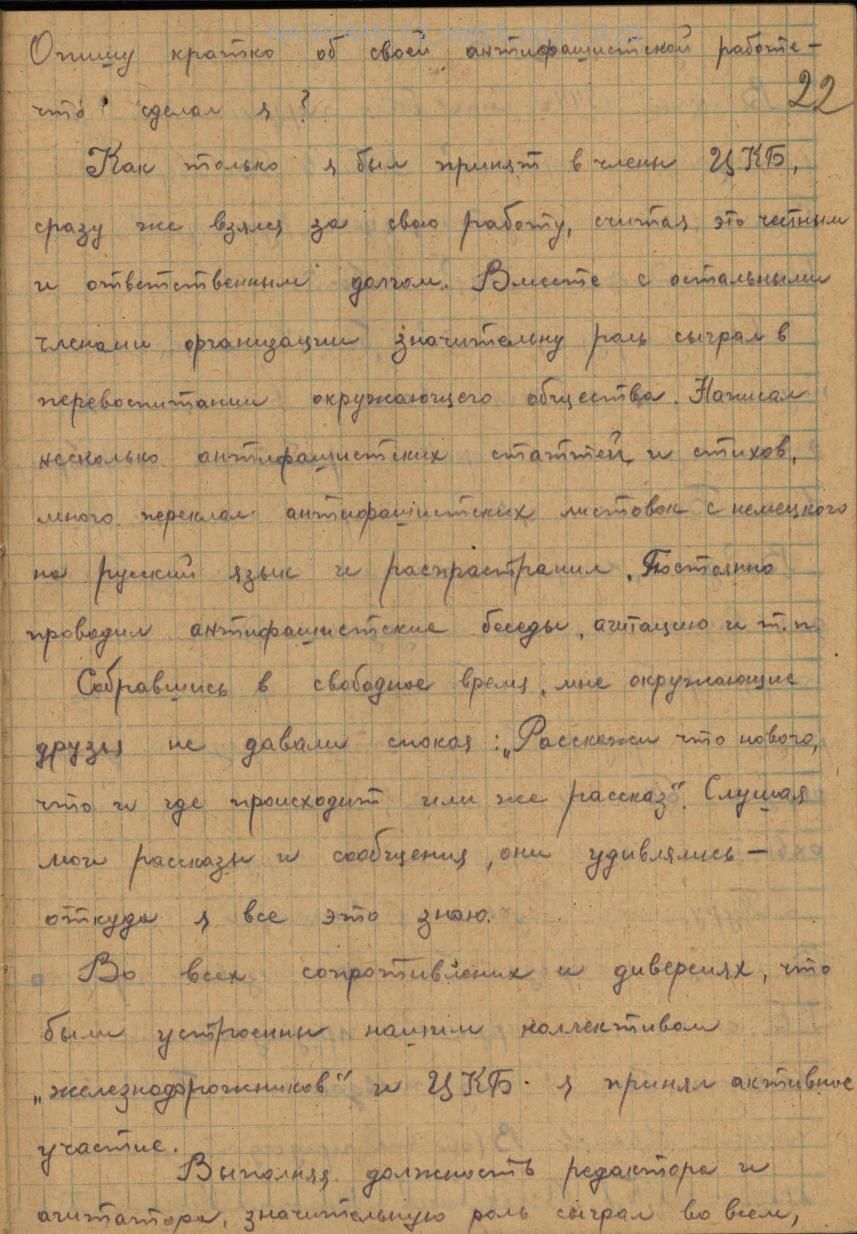 Опишу кратко об своей антифашистской работе –
что сделал я?
22
Как только я был принят в члены ЦКБ,
сразу же взялся за свою работу, считая это честным
и ответственным долгом. Вместе с остальными
членами организации значительну роль сыграл в
перевоспитании окружающего общества. Написал
несколько антифашистских статтей и стихов,
много переклал антифашистских листовок с немецкого
на русский язык и распрастранил. Постоянно
проводил антифашистские беседы, агитацию и т.п.
Собравшись в свободное время, мне окружающие
друзья не давали спокоя: „Расскажи что нового,
что и где происходит или же рассказ“. Слушая
мои рассказы и сообщения, они удивлялись –
откуда я все это знаю.
Во всех сопротивлених и диверсиях, что
были устроенны нашим коллективом
„железнодорожников“ и ЦКБ я принял активное
участие.
Выполняя должность редактора и
агитатора, значительную роль сыграл во всем,